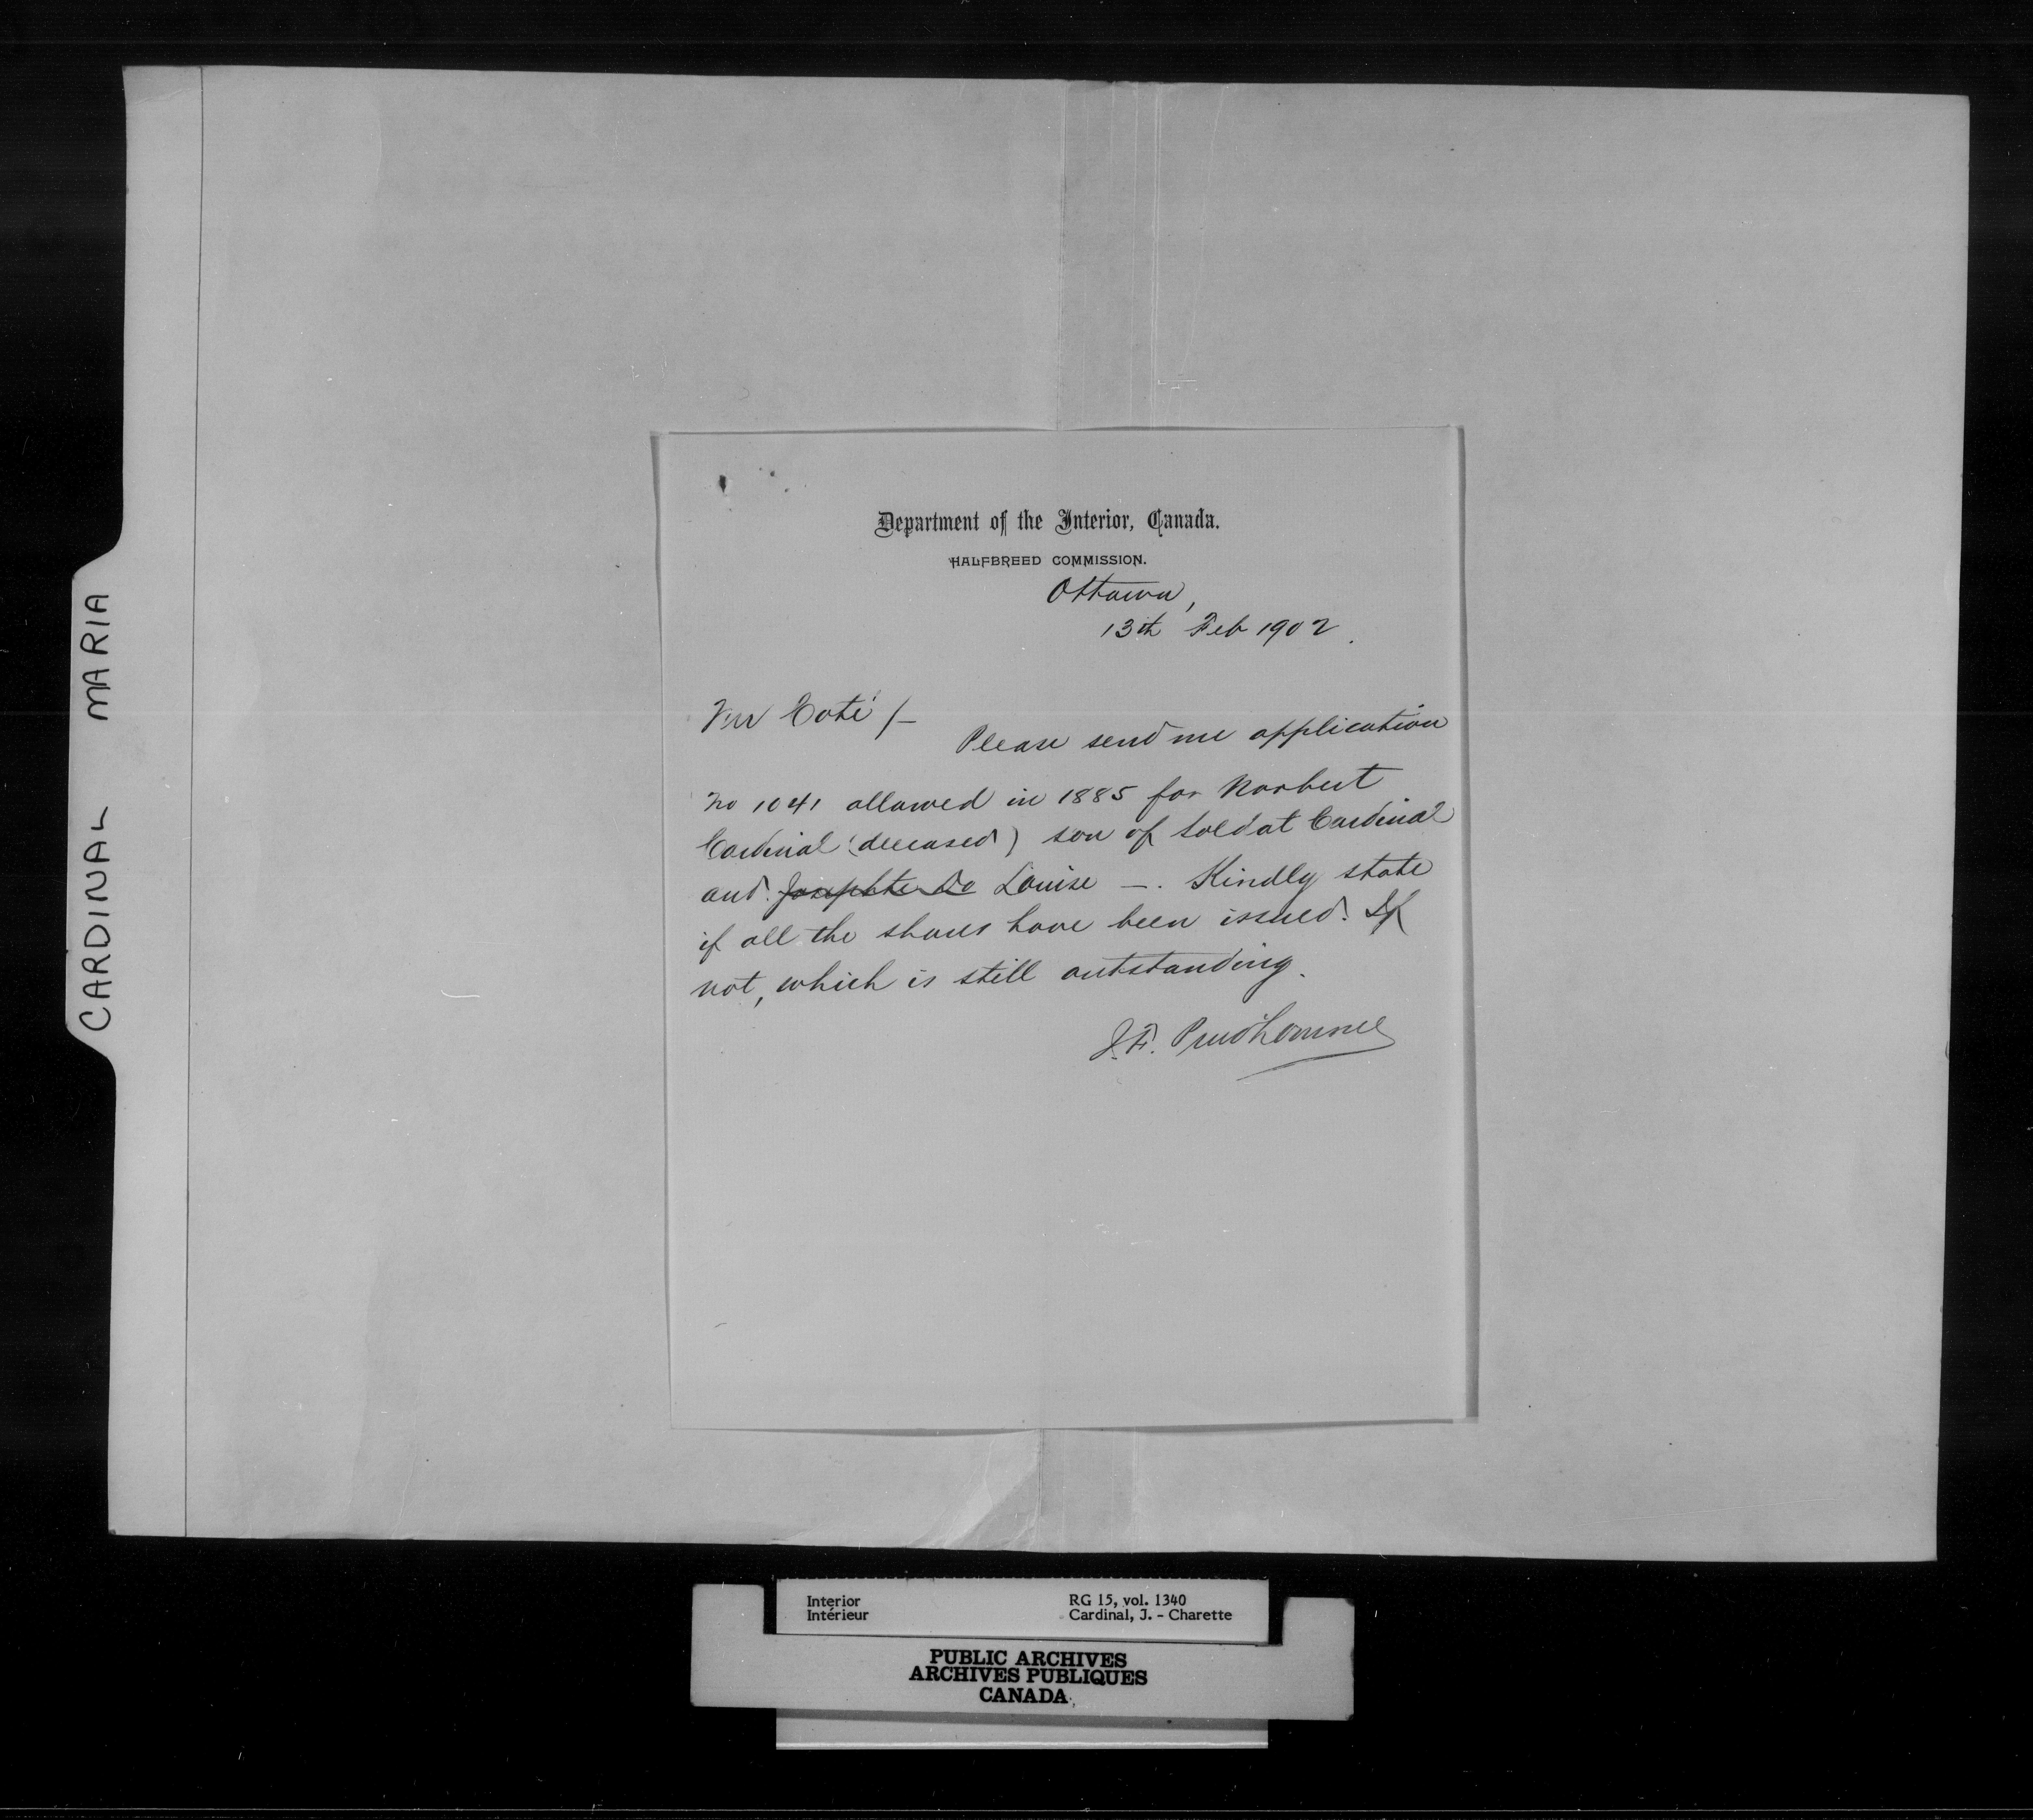 CARDINAL MARIA
Department of the Interior, Canada.
HALFBREED COMMISSION.
Ottawa,
13th Feb 1902.
Mr Coté /-
Please send me application
No 1041 allowed in 1885 for Norbert
Cardinal (deceased) son of Soldat Cardinal
and Josephte Do Louise —. Kindly state
if all the shares have been issued. If
not, which is still outstanding.
J.F. Prudhomme
Interior RG 15, vol. 1340
Intérieur Cardinal, J. - Charette
PUBLIC ARCHIVES
ARCHIVES PUBLIQUES
CANADA